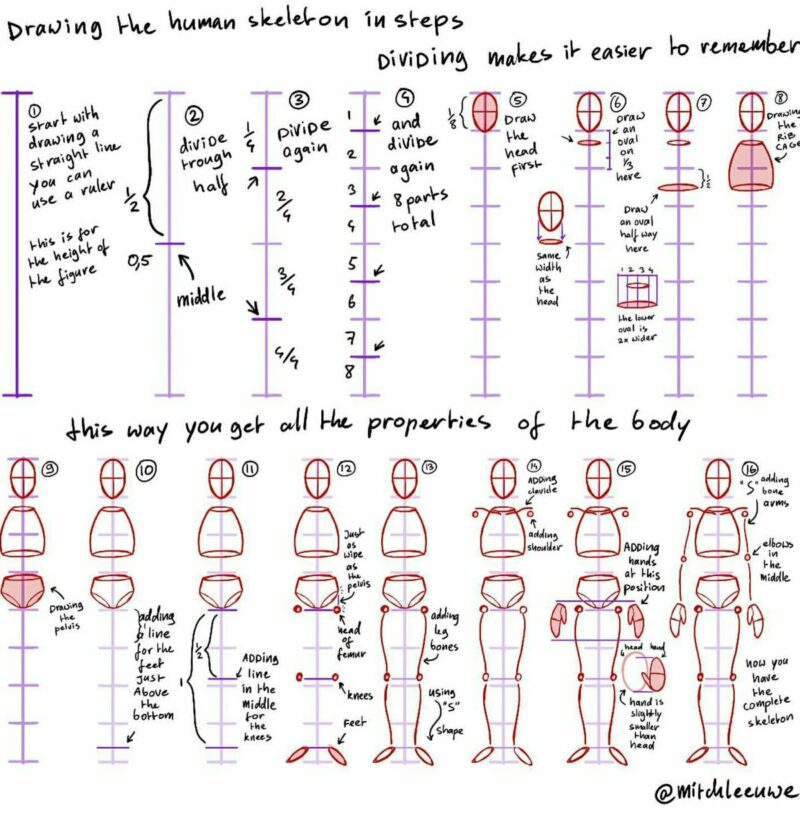 Drawing the human skeleton in steps
Dividing makes it easier to remember
①
start with
drawing a
straight line
you can
use a ruler
this is for
the height of
the figure
②
divide
trough
half
1/2
0,5
middle
③
Divide
again
1/4
2/4
3/4
4/4
④
and
divibe
again
8 parts
total
1
2
3
4
5
6
7
8
⑤
Draw
the
head
first
1/8
⑥
Draw
an
oval
on
1/3
here
same
width
as
the
head
⑦
1/2
Draw
an oval
half way
here
1 2 3 4
the lower
oval is
2x wider
⑧
Drawing
the
RIB
CAGE
this way you get all the properties of the body
⑨
Drawing
the
pelvis
⑩
adding
a line
for the
feet
just
Above
the
bottom
⑪
1/2
1
ADDing
line
in the
middle
for
the
knees
⑫
Just
as
wipe
as
the
pelvis
head
of
femur
knees
Feet
⑬
adding
leg
bones
using
"S"
shape
⑭
ADDing
clavicle
adding
shoulder
⑮
ADDing
hands
at this
position
head hand
hand is
slightly
smaller
than
head
⑯
"S" adding
bone
arms
elbows
in
the
middle
now you
have
the
complete
skeleton
@mitchleeuwe